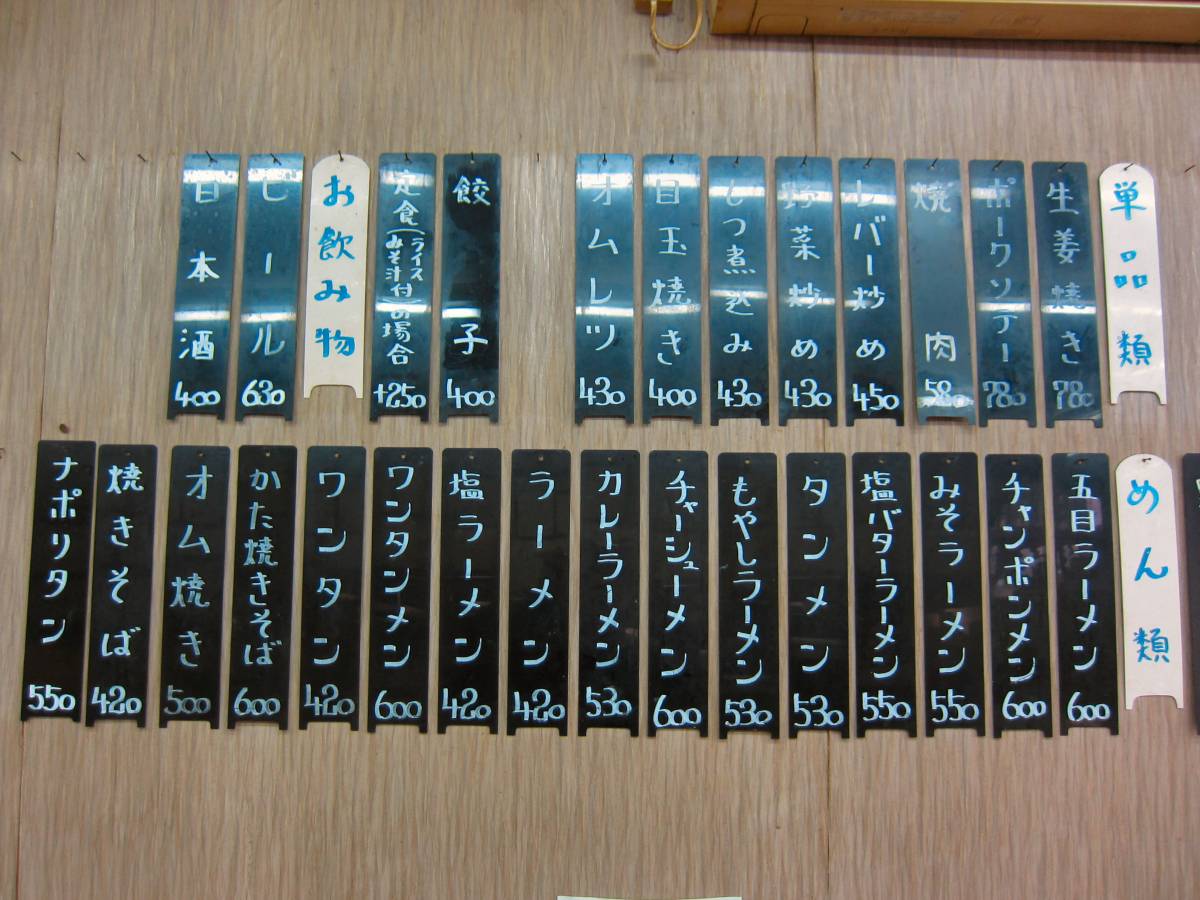 単品類
生姜焼き 780
ポークソテー 780
焼肉 580
レバー炒め 450
野菜炒め 430
もつ煮込み 430
目玉焼き 400
オムレツ 430
餃子 400
定食(ライスみそ汁付)の場合 +250
お飲み物
ビール 630
日本酒 400
めん類
五目ラーメン 600
チャンポンメン 600
みそラーメン 550
塩バターラーメン 550
タンメン 530
もやしラーメン 530
チャーシューメン 600
カレーラーメン 530
ラーメン 420
塩ラーメン 420
ワンタンメン 600
ワンタン 420
かた焼きそば 600
オム焼き 500
焼きそば 420
ナポリタン 550